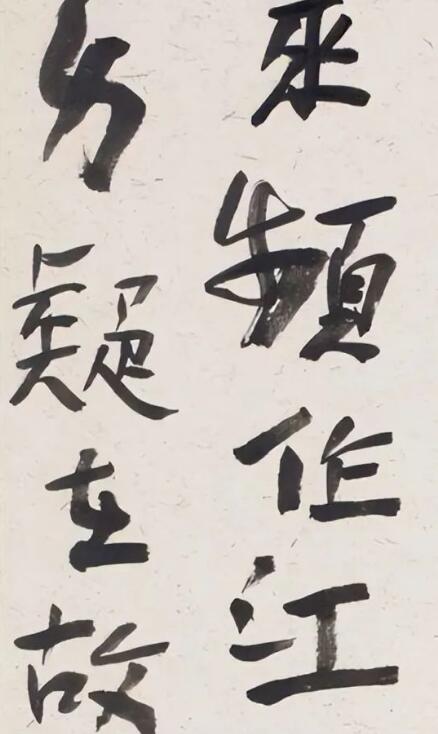 來頻作江
疑在故